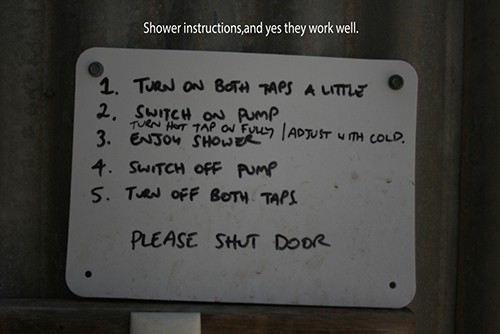 Shower instructions,and yes they work well.
1. TURN ON BOTH TAPS A LITTLE
2. SWITCH ON PUMP
TURN HOT TAP ON FULLY / ADJUST WITH COLD.
3. ENJOY SHOWER
4. SWITCH OFF PUMP
5. TURN OFF BOTH TAPS
PLEASE SHUT DOOR